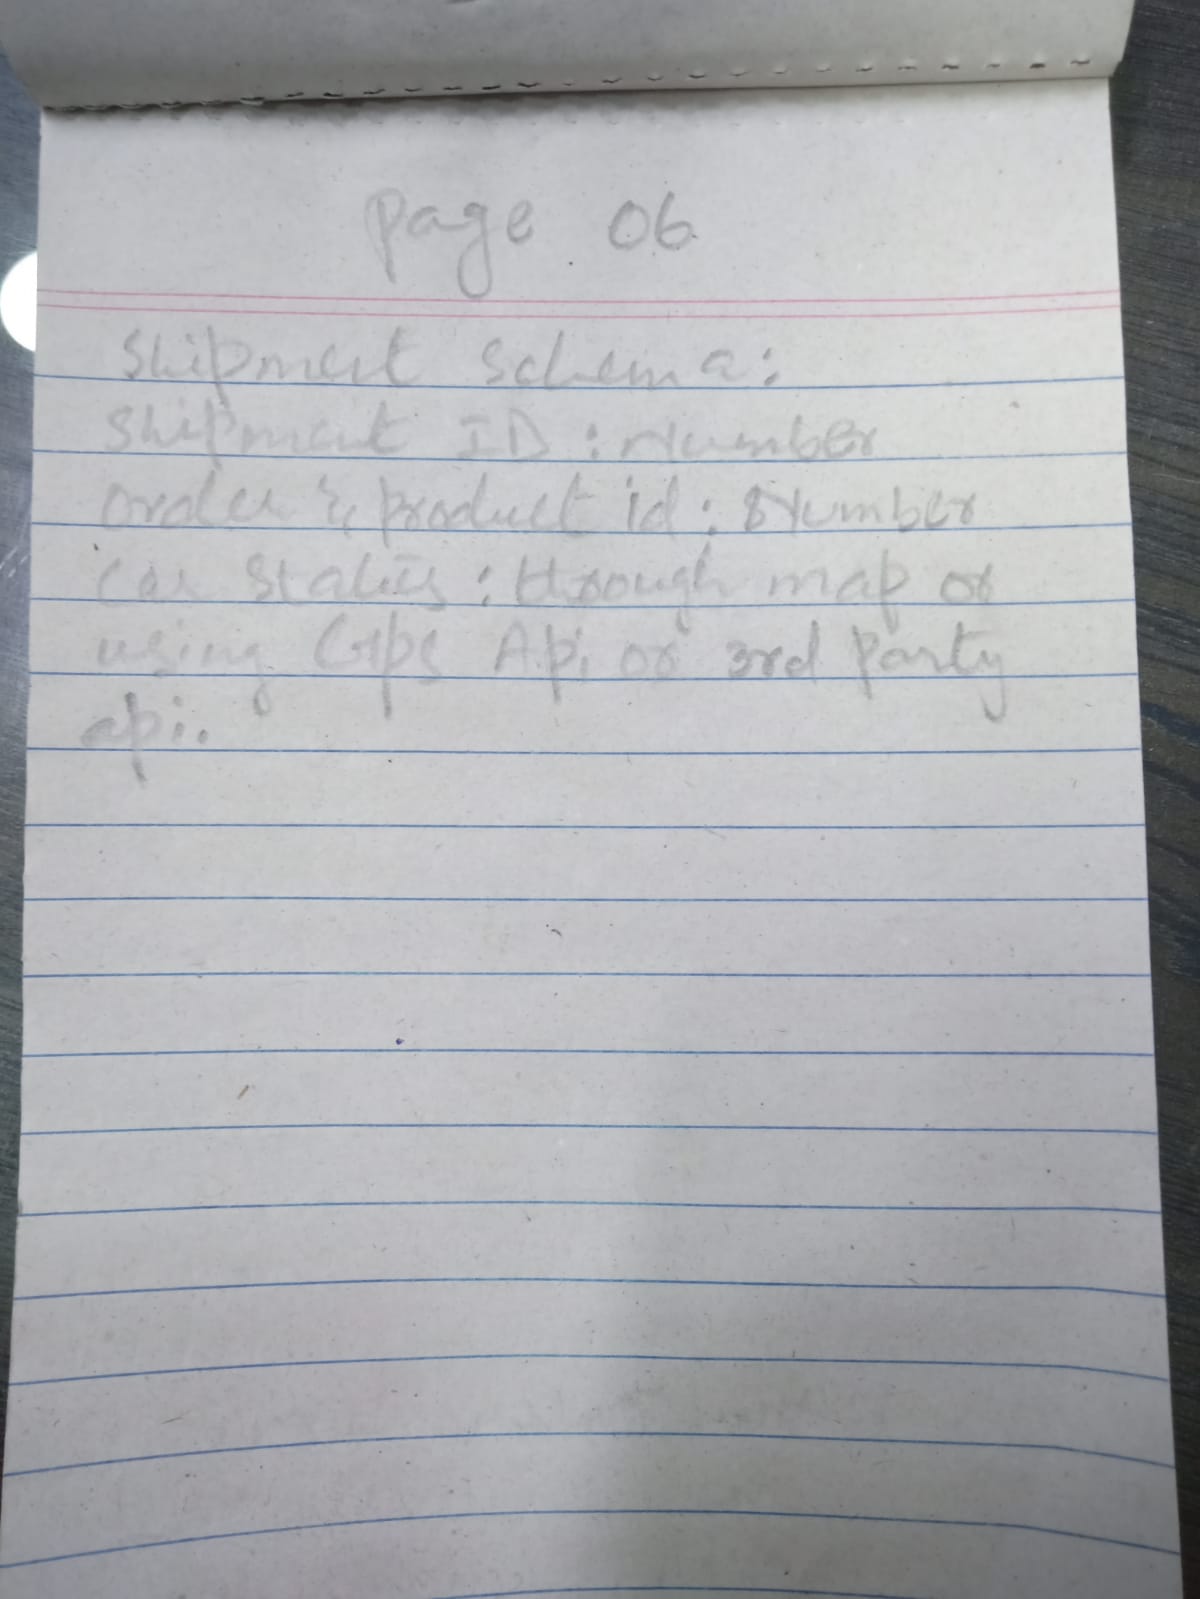 Page 06
Shipment Schema:
Shipment ID : Number
order & product id : Number
Car Status : through map or
using Gps Api or 3rd party
api.